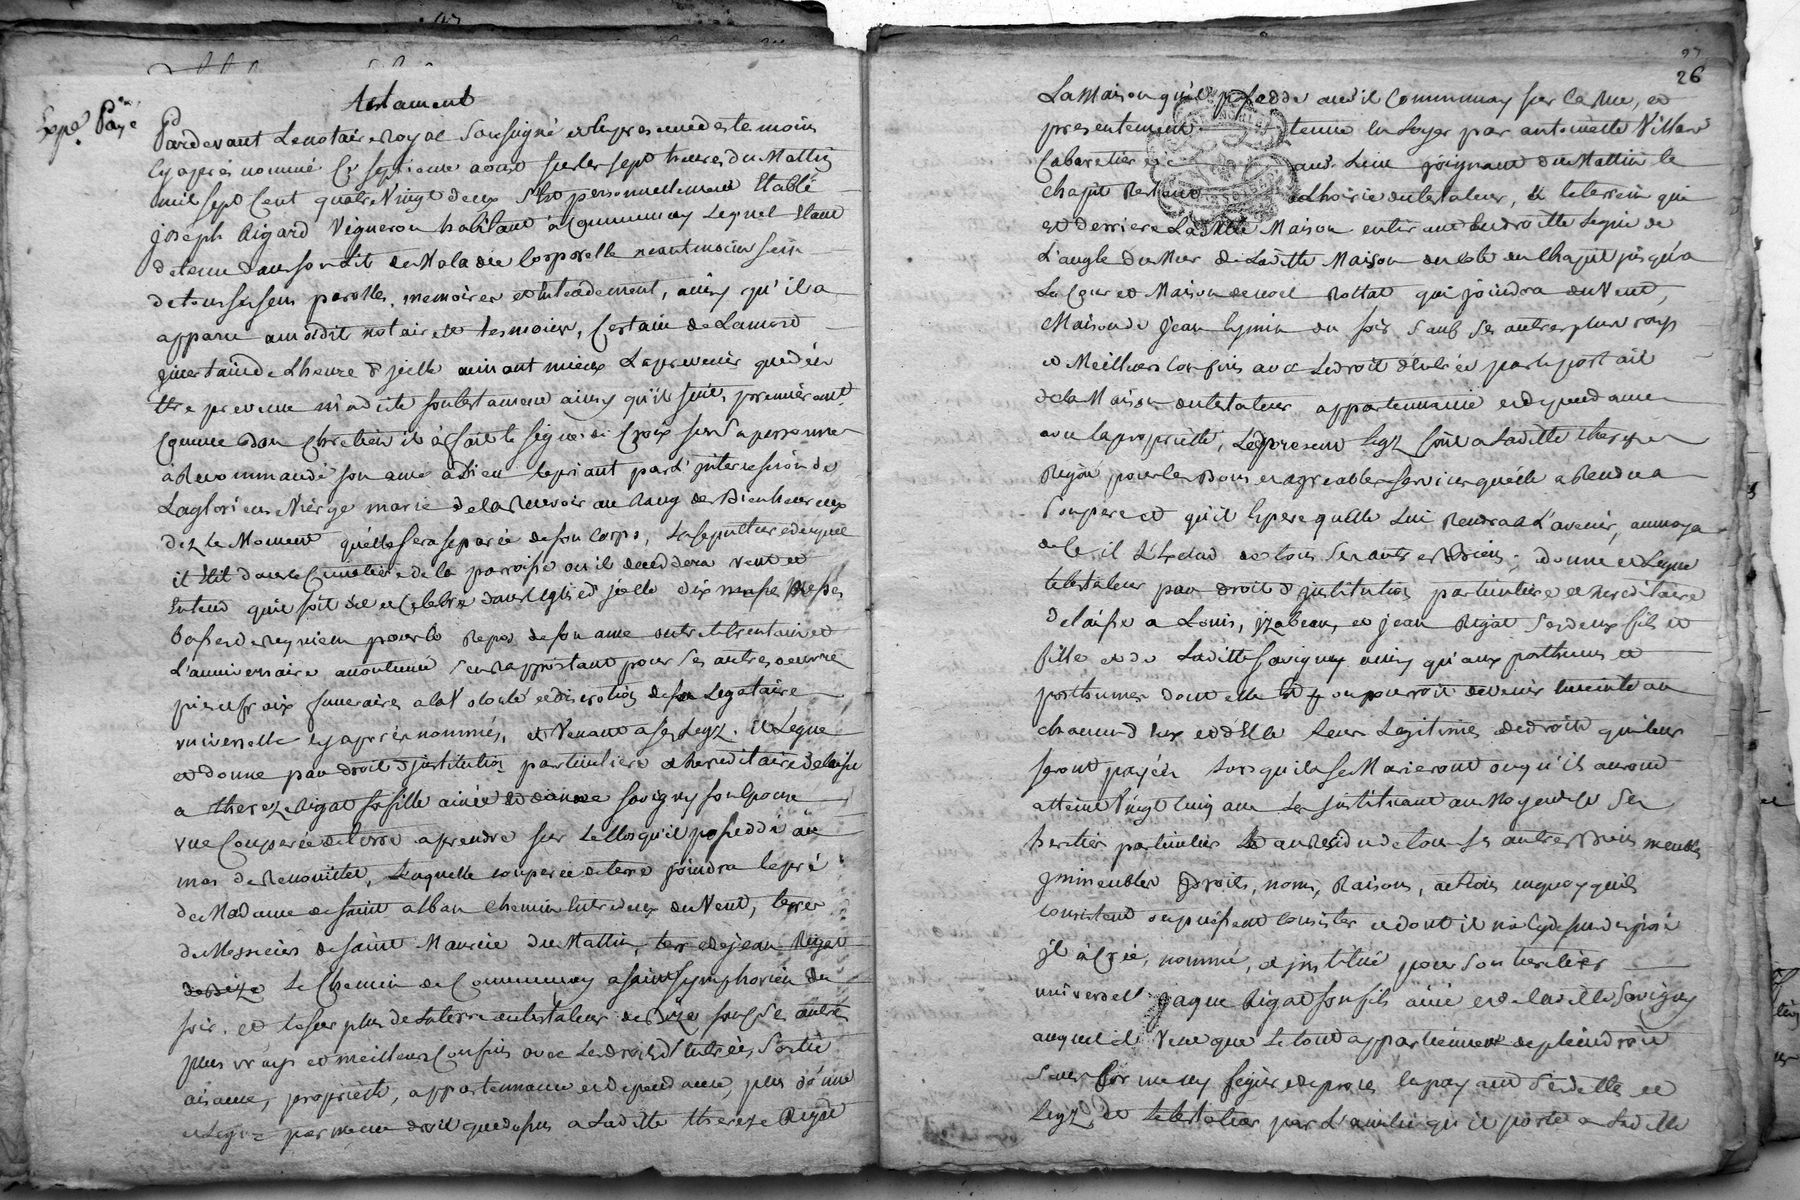 Testament
Expé. Payé
Pardevant Le notaire Royal Soussigné et En presence des temoins
Cy apres nommé Ce septieme aoust sur les sept heures du Mattin
mil sept Cent quatre Vingt deux S'est personnellement Etabli
joseph Rigard Vigneron habitant à Communay Lequel Etant
detenu dans son Lit de Maladie Corporelle neantmoins sein
de tous ses sens parolles, memoires et Entendement, ainsy qu'il a
apparu audit notaire et temoins, Certain de La mort
jncertain de L'heure d'jcelle aimant mieux La prevenir que d'en
Etre prevenu il a dicté son testament ainsy qu'il suit, premièrement
Comme bon Chretien il à fait le signe de Croix sur Sa personne
à Recommandé son ame à Dieu le priant par L'jntercession de
La glorieuse Viérge marie de la Recevoir au Rang des Bienheureux
dez le Moment qu'elle sera separée de son Corps, La sepulture duquel
il Elit dans le Cimetiere de la paroisse où il deceddera veut et
Entend qu'il soit dit et Celebré dans L'eglise d'jcelle dix messes
basses de requiem pour le Repos de son ame outre le trentain et
L'anniversaire accoutumé s'en Rapportant pour ses autres oeuvres
pies et fraix funeraires à la Volonté et discrétion de son Legataire
universelle cy apres nommés, et Venant a ses Legz. Il Legue
et donne par droit d'jnstitution particuliere et hereditaire delaisse
a thereze Rigat sa fille ainée et de Savigny son Epouse
une Couperée de terre a prendre sur Le Clos qu'il possedde au
mas de Renouillet, Laquelle couperée de terre joindra le pré
de Madame de saint alban chemin Entre deux du Vent, terre
de Messieurs de saint Maurice du Mattin, terre de jean Rigat
Le Chemin de Communay a saint symphorien du
soir, et le surplus de La terre du testateur de Bize sauf ses autres
plus vrays et meilleurs Confins avec Les droits d'Entrées, Sortie
aisance, proprieté, appartenance et dependance, plus donne
et Legue par même droit que dessus a Laditte thereze Rigat
26
La Maison qu'il possedde audit Communay sur la Rue, et
presentement tenue En Loyer par antoinette Villard
Cabaretiere audit Lieu joignant du Mattin le
chapit Restant a L'hoirie du testateur, et le terrein qui
est derriere Laditte Maison entirant En droitte Ligne de
L'angle du Mur de Laditte Maison du Coté du Chapit jusqu'a
La Cour et Maison de noel Rottat qui joindra du Vent,
Maison de jean du soir sauf ses autres plus vrays
et Meilleurs Confins avec Le droit d'Entrée par le portail
de la Maison du testateur appartenance et dependance
avec la proprieté, Le present Legz fait a Laditte thereze
Rigat, pour les Bons et agreables services qu'elle a Rendu a
son pere et qu'il Espere qu'elle Lui Rendra a L'avenir, au moyen
de ce il L'Exclud de tous Ses autres Biens; donne et Legue
le testateur par droit d'jnstitution particuliere et hereditaire
delaisse a Louis, jzabeau, et jean Rigat ses deux fils et
fille et de Laditte Savigny ainsy qu'aux posthumes et
posthumes dont elle est ou pourroit devenir Enceinte au
chacun d'Eux et d'Elle Leur Legitime de droit qui Leur
seront payées Lorsqu'ils se Marieront ou qu'ils auront
atteint Vingt Cinq ans Les jnstituant au Moyen de ce Ses
heritiers particuliers Et au Residu de tous ses autres Biens meubles
jmmeubles droits, noms, Raisons, actions en quoy qu'ils
consistent ou puissent consister et dont il n'a Cy dessus disposé
jl à Créé, nommé, et jnstitué pour Son heritier
universel jaque Rigat son fils ainé et de laditte Savigny
auquel il Veut que Le tout appartienne de plein droit
Sans forme ny figure de procès En payant Ses dettes et
Legz, Et Le testateur par L'amitié qu'il porte a Laditte